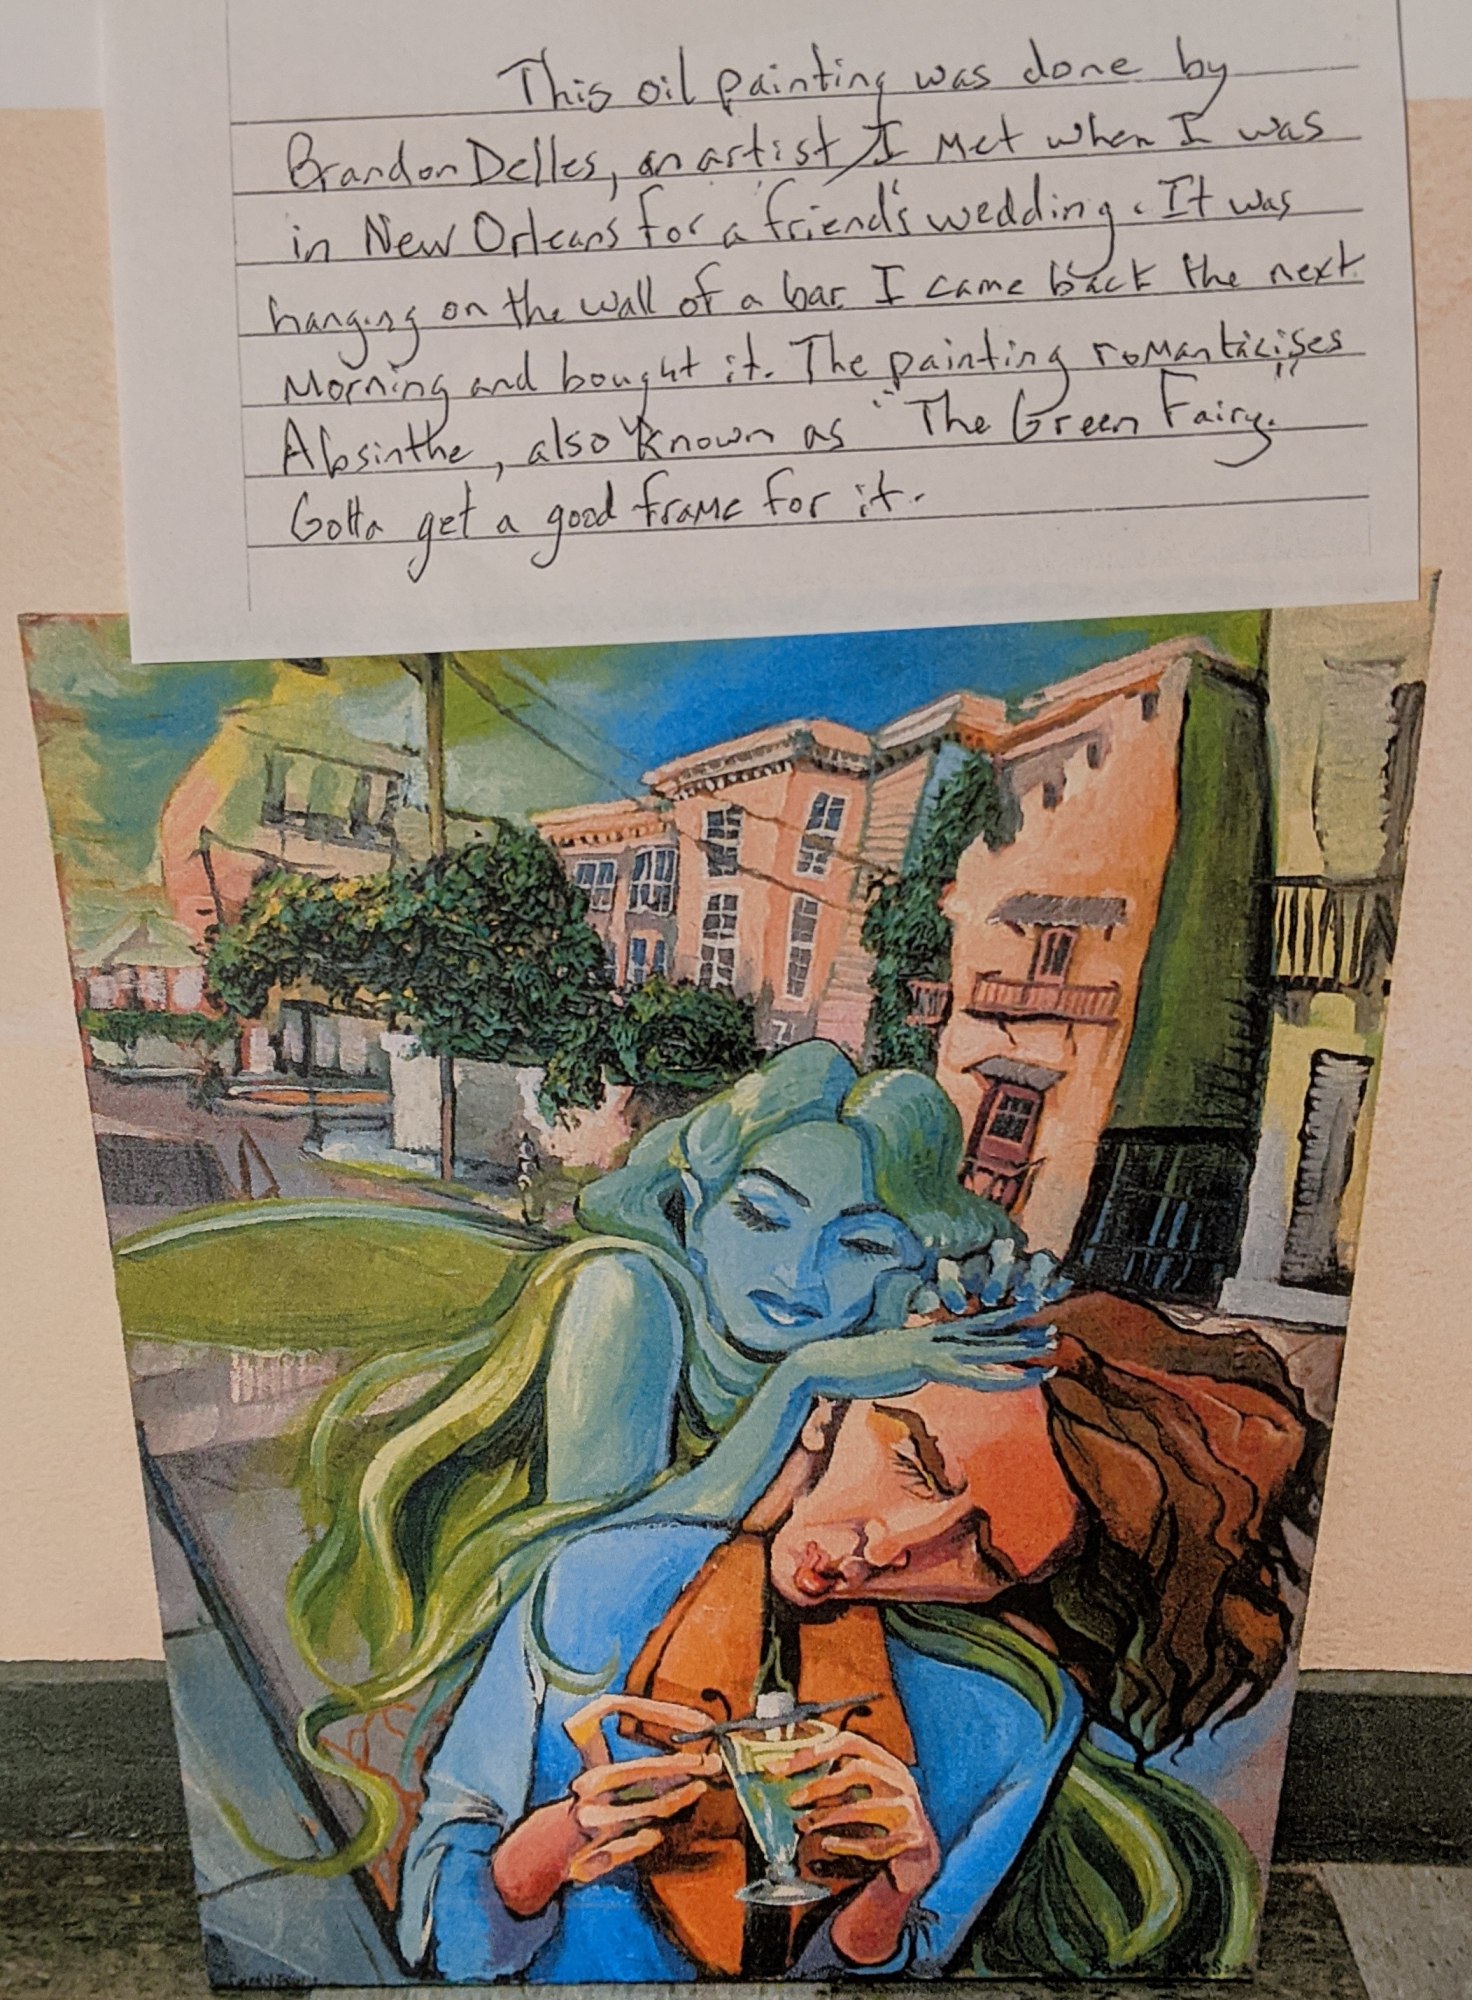 This oil painting was done by
Brandon Delles, an artist I met when I was
in New Orleans for a friend's wedding. It was
hanging on the wall of a bar. I came back the next
morning and bought it. The painting romanticises
Absinthe, also known as "The Green Fairy."
Gotta get a good frame for it.